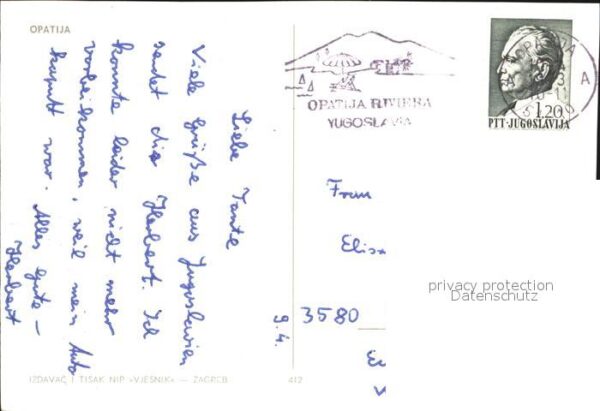 OPATIJA
Liebe Tante
Viele Grüße aus Jugoslawien
sendet dir Herbert. Ich
konnte leider nicht mehr
vorbeikommen, weil mein Auto
kaputt war. Alles Gute –
Herbert
9.4.
IZDAVAČ I TISAK NIP »VJESNIK« — ZAGREB
412
OPATIJA RIVIERA
YUGOSLAVIA
1.20
PTT-JUGOSLAVIJA
Frau
Elisa
3580
privacy protection
Datenschutz